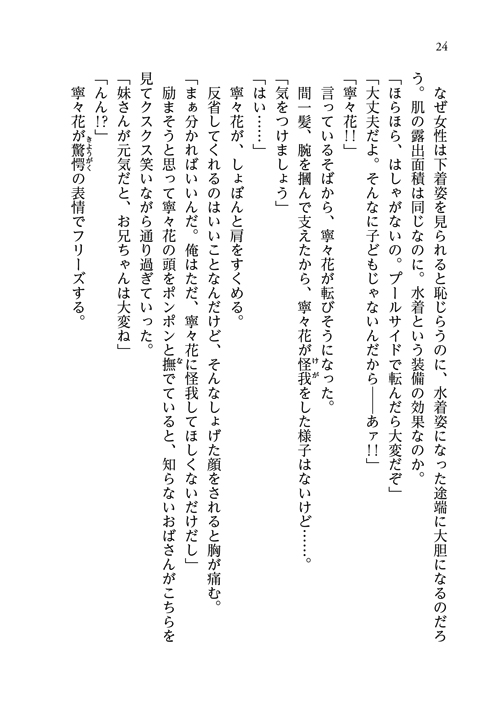 24
なぜ女性は下着姿を見られると恥じらうのに、水着姿になった途端に大胆になるのだろ
う。肌の露出面積は同じなのに。水着という装備の効果なのか。
「ほらほら、はしゃがないの。プールサイドで転んだら大変だぞ」
「大丈夫だよ。そんなに子どもじゃないんだから――あァ!!」
「寧々花!!」
言っているそばから、寧々花が転びそうになった。
間一髪、腕を摑んで支えたから、寧々花が怪我をした様子はないけど……。
「気をつけましょう」
「はい……」
寧々花が、しょぼんと肩をすくめる。
反省してくれるのはいいことなんだけど、そんなしょげた顔をされると胸が痛む。
「まぁ分かればいいんだ。俺はただ、寧々花に怪我してほしくないだけだし」
励まそうと思って寧々花の頭をポンポンと撫でていると、知らないおばさんがこちらを
見てクスクス笑いながら通り過ぎていった。
「妹さんが元気だと、お兄ちゃんは大変ね」
「んん!?」
寧々花が驚愕の表情でフリーズする。